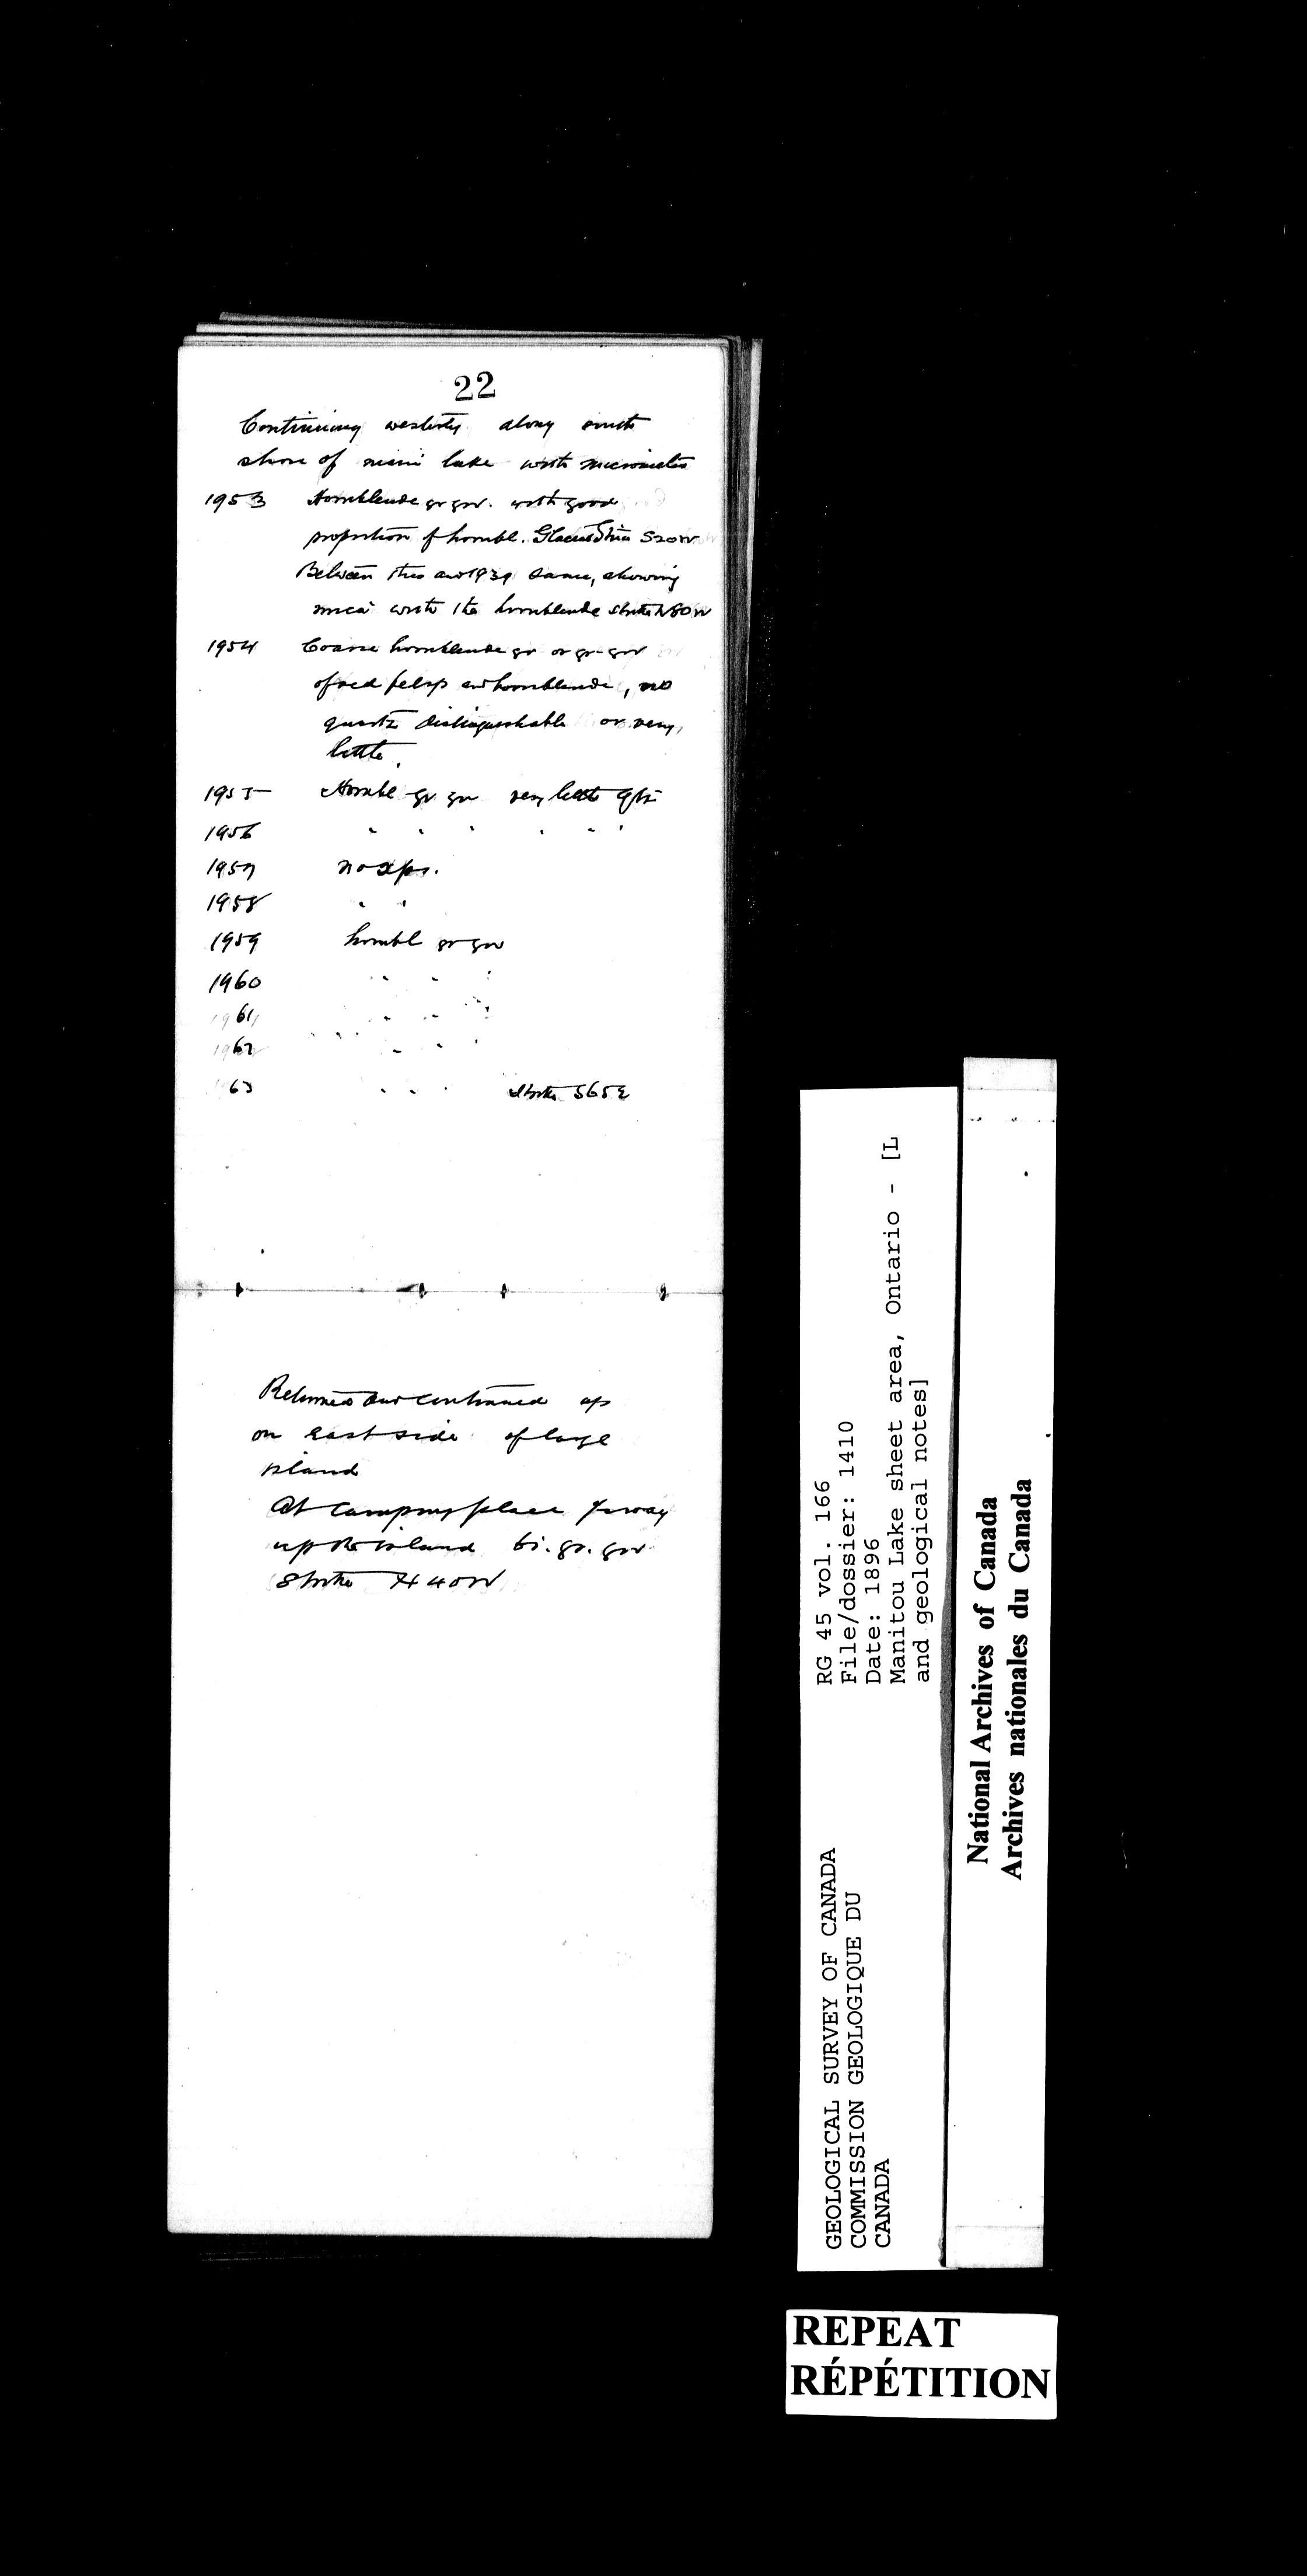 22
Continuing westerly along south
shore of main lake with micrometer
1953 Hornblende gr gn. with good
proportion of hornbl. Glacial Stria S20W
Between this and 1939 same, showing
mica with the hornblende strike N80W
1954 Coarse hornblende gr or gr-gn
of red felsp and hornblende, no
quartz distinguishable or very
little.
1955 Hornbl gr gn very little qtz
1956 " " " " " "
1957 no exps.
1958 " "
1959 hornbl gr gn
1960 " " "
1961 " " "
1962 " " "
63 " " " Strike S65E
Returned and continued up
on East side of large
island
At camping place way
up the island bi. gr. gn
Strike N40W
RG 45 vol. 166
File/dossier: 1410
Date: 1896
Manitou Lake sheet area, Ontario - [L
and geological notes]
GEOLOGICAL SURVEY OF CANADA
COMMISSION GEOLOGIQUE DU
CANADA
National Archives of Canada
Archives nationales du Canada
REPEAT
RÉPÉTITION